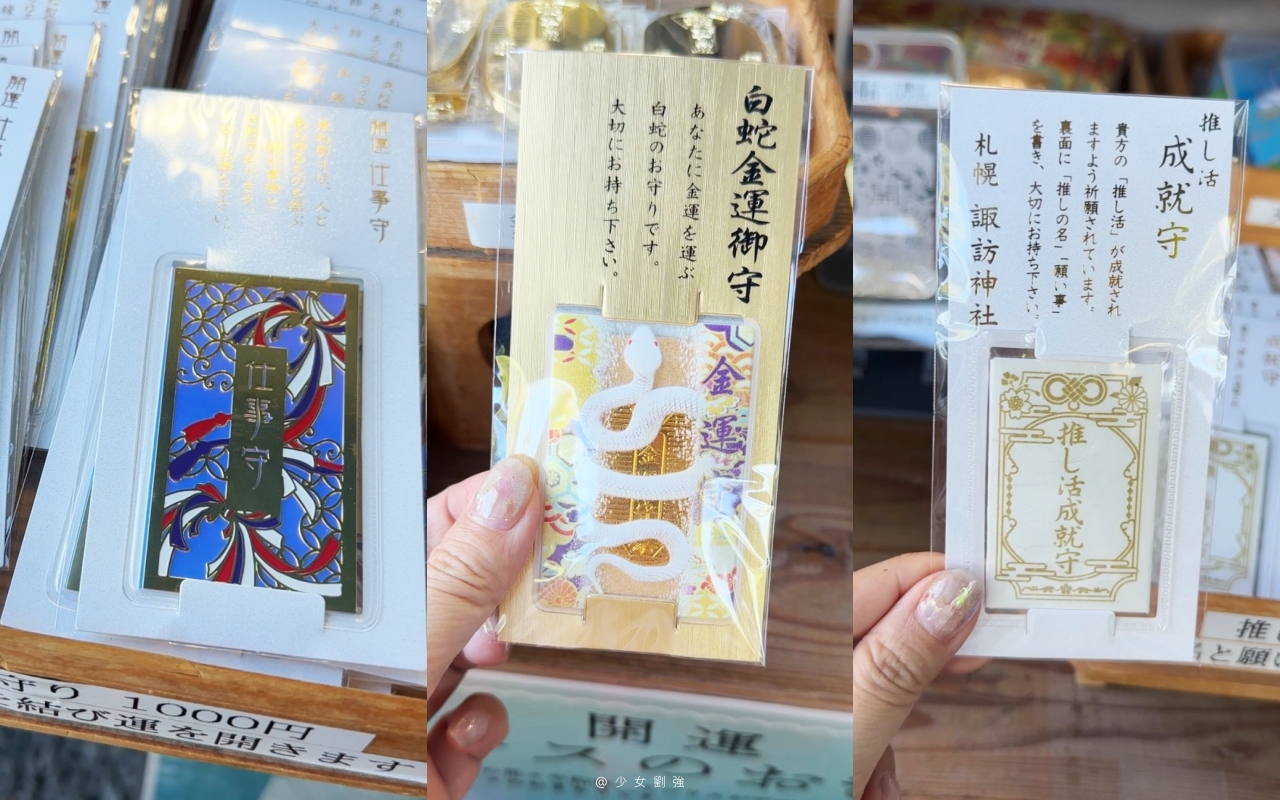 開運 仕事守
仕事守
守り 1000円
結び運を開きます
白蛇金運御守
あなたに金運を運ぶ
白蛇のお守りです。
大切にお持ち下さい。
金運
金
開運
スのお
推し活
成就守
貴方の「推し活」が成就され
ますよう祈願されています。
裏面に「推しの名」「願い事」
を書き、大切にお持ち下さい。
札幌 諏訪神社
推し活成就守
推
と願い
@少女劉強